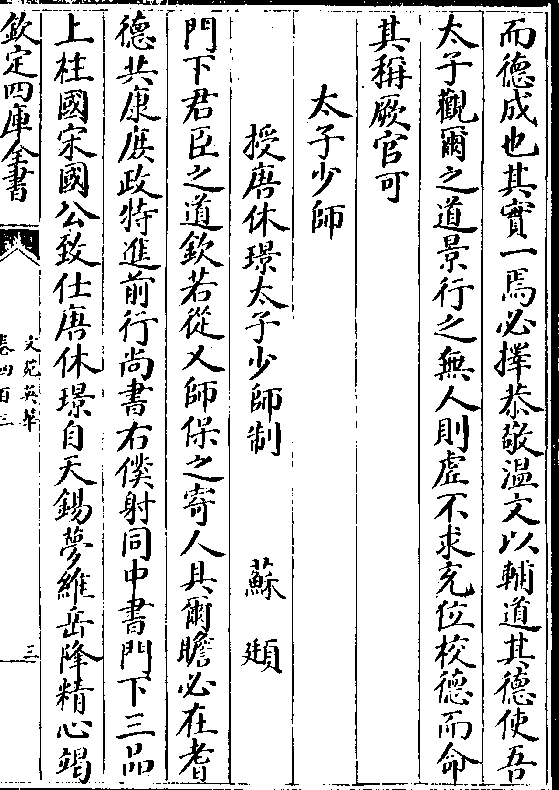 而德成也其實一焉必擇恭敬溫文以輔道其德使吾
太子觀爾之道景行之無人則虛不求充位校德而命
其稱厥官可
太子少師
授唐休璟太子少師制 蘇頲
門下君臣之道欽若從乂師保之寄人具爾瞻必在耆
德共康庶政特進前行尚書右僕射同中書門下三品
上柱國宋國公致仕唐休璟自天錫夢維岳降精心竭
欽定四庫全書
文苑英華
卷四百三
三